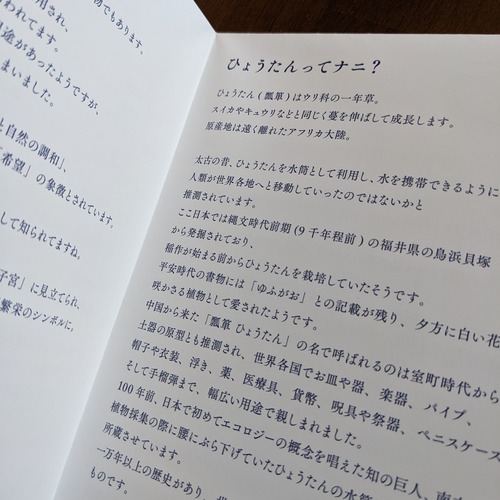 物でもあります。
用され、
われてます。
用途があったようですが、
まいました。
と自然の調和」、
「希望」の象徴とされています。
して知られてますね。
子宮」に見立てられ、
繁栄のシンボルに。
ひょうたんってナニ？
ひょうたん(瓢箪)はウリ科の一年草。
スイカやキュウリなどと同じく蔓を伸ばして成長します。
原産地は遠く離れたアフリカ大陸。
太古の昔、ひょうたんを水筒として利用し、水を携帯できるように
人類が世界各地へと移動していったのではないかと
推測されています。
ここ日本では縄文時代前期(9千年程前)の福井県の鳥浜貝塚
から発掘されており、
稲作が始まる前からひょうたんを栽培していたそうです。
平安時代の書物には「ゆふがお」との記載が残り、夕方に白い花
咲かさる植物として愛されたようです。
中国から来た「瓢箪 ひょうたん」の名で呼ばれるのは室町時代から
土器の原型とも推測され、世界各国でお皿や器、楽器、パイプ、
帽子や衣装、浮き、薬、医療具、貨幣、呪具や祭器、ペニスケース
そして手榴弾まで、幅広い用途で親しまれました。
100年前、日本で初めてエコロジーの概念を唱えた知の巨人、南方
植物採集の際に腰にぶら下げていたひょうたんの水筒
所蔵させています。
一万年以上の歴史があり、世
ものです。